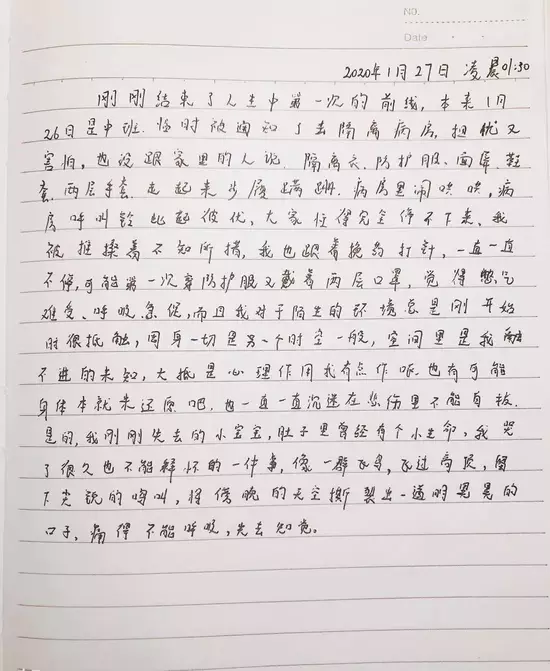 NO.
Date
2020年1月27日 凌晨01:30
刚刚结束了人生中第一次的前线,本来1月
26日是中班.临时被通知了去隔离病房,担忧又
害怕,也没跟家里的人说.隔离衣、防护服、面屏、鞋
套、两层手套.走起来步履蹒跚.病房里闹哄哄,病
房呼叫铃此起彼伏、大家忙得完全停不下来、我
被推搡着不知所措,我也跟着换药打针,一直一直
不停,可能第一次穿防护服又戴着两层口罩,觉得憋气
难受、呼吸急促,而且我对于陌生的环境总是刚开始
时很抵触,周身一切是另一个时空一般,空间里是我融
不进的未知,大抵是心理作用我有点作呕.也有可能
身体本就未还原吧.也一直一直沉迷在悲伤里不能自拔.
是的,我刚刚失去的小宝宝,肚子里曾经有个小生命,我哭
了很久也不能释怀的一件事,像一群飞鸟,飞过高顶,留
下尖锐的鸣叫,将傍晚的天空撕裂出一透明晃晃的
口子,痛得不能呼吸,失去知觉。